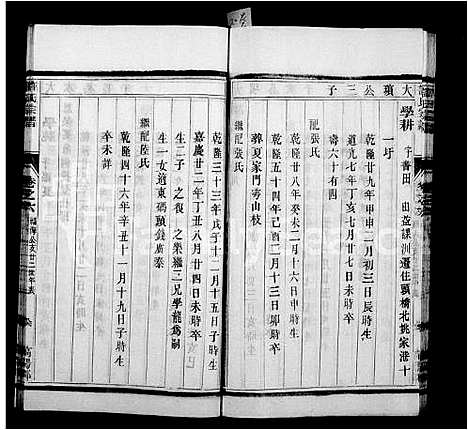 大 賓 公 三 子
學耕
字書田 由並課洲遷住頭橋北姚家港十
一圩
乾隆廿九年甲申二月初三日辰時生
道光七年丁亥七月廿七日未時卒
壽六十有四
配張氏
乾隆廿八年癸未二月十六日申時生
乾隆五十四年己酉二月十三日卯時卒
葬夏家門秀山枝
繼配張氏
乾隆三十三年戊子十二月十五日子時生
嘉慶廿二年丁丑八月廿四日未時卒
生二子 之復 之樂繼三兄學龍為嗣
一女適東碼頭錢廣泰
繼配陸氏
乾隆四十六年辛丑十一月十九日子時生
卒未詳
卷之六